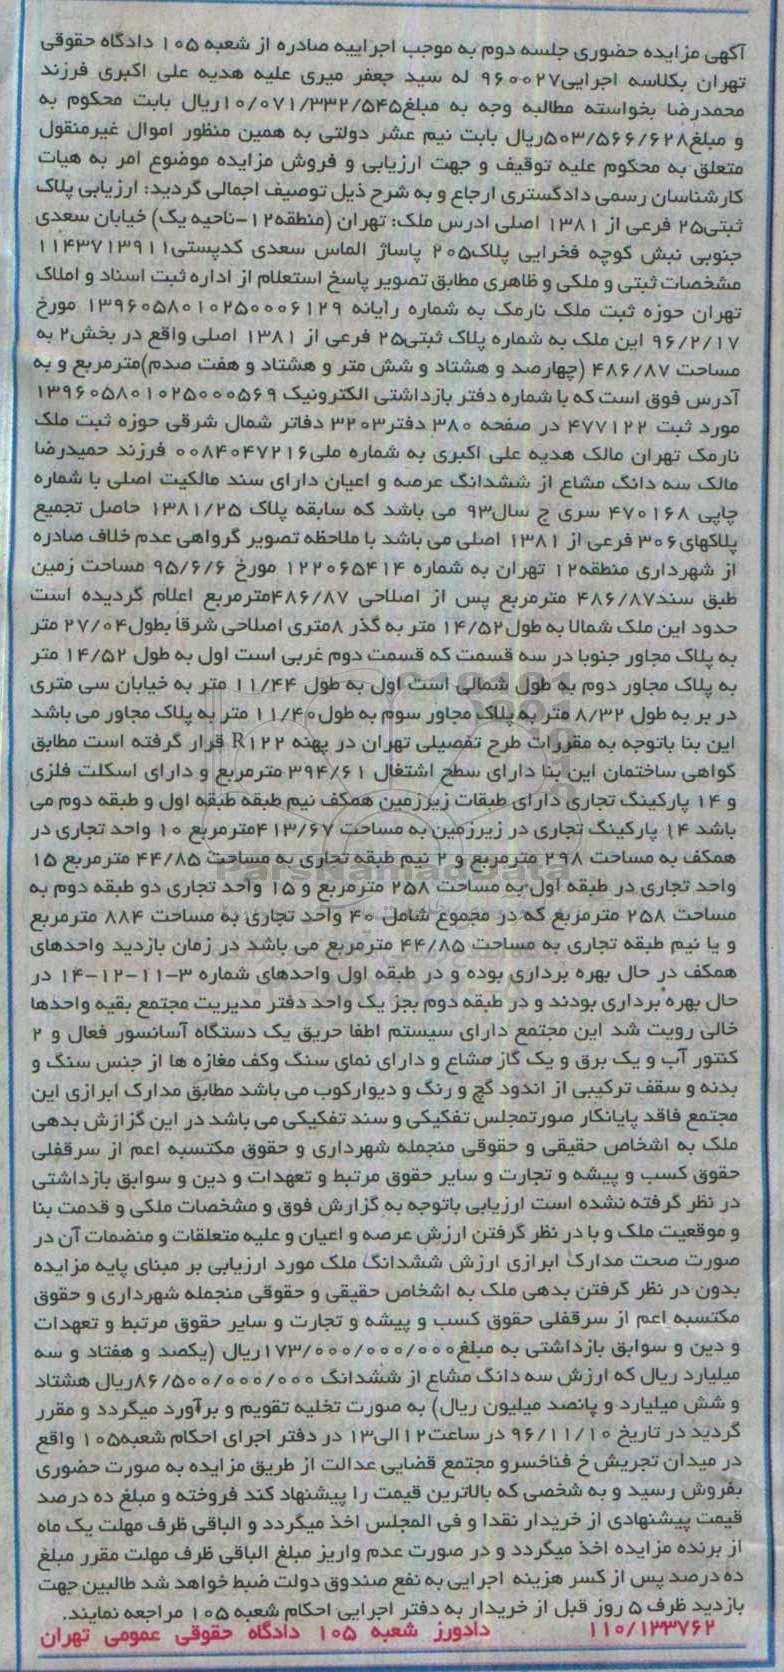 آگهی مزایده حضوری جلسه دوم به موجب اجراییه صادره از شعبه ۱۰۵ دادگاه حقوقی
تهران بکلاسه اجرایی۹۶۰۰۲۷ له سید جعفر میری علیه هدیه علی اکبری فرزند
محمدرضا بخواسته مطالبه وجه به مبلغ۱۰/۰۷۱/۳۳۲/۵۴۵ریال بابت محکوم به
و مبلغ۵۰۳/۵۶۶/۶۲۸ریال بابت نیم عشر دولتی به همین منظور اموال غیرمنقول
متعلق به محکوم علیه توقیف و جهت ارزیابی و فروش مزایده موضوع امر به هیات
کارشناسان رسمی دادگستری ارجاع و به شرح ذیل توصیف اجمالی گردید: ارزیابی پلاک
ثبتی۲۵ فرعی از ۱۳۸۱ اصلی ادرس ملک: تهران (منطقه۱۲-ناحیه یک) خیابان سعدی
جنوبی نبش کوچه فخرایی پلاک۲۰۵ پاساژ الماس سعدی کدپستی۱۱۴۳۷۱۳۹۱۱
مشخصات ثبتی و ملکی و ظاهری مطابق تصویر پاسخ استعلام از اداره ثبت اسناد و املاک
تهران حوزه ثبت ملک نارمک به شماره رایانه ۱۳۹۶۰۵۸۰۱۰۲۵۰۰۰۶۱۲۹ مورخ
۹۶/۲/۱۷ این ملک به شماره پلاک ثبتی۲۵ فرعی از ۱۳۸۱ اصلی واقع در بخش۲ به
مساحت ۴۸۶/۸۷ (چهارصد و هشتاد و شش متر و هشتاد و هفت صدم)مترمربع و به
آدرس فوق است که با شماره دفتر بازداشتی الکترونیک ۱۳۹۶۰۵۸۰۱۰۲۵۰۰۰۵۶۹
مورد ثبت ۴۷۷۱۲۲ در صفحه ۳۸۰ دفتر۳۲۰۳ دفاتر شمال شرقی حوزه ثبت ملک
نارمک تهران مالک هدیه علی اکبری به شماره ملی۰۰۸۴۰۴۷۲۱۶ فرزند حمیدرضا
مالک سه دانگ مشاع از ششدانگ عرصه و اعیان دارای سند مالکیت اصلی با شماره
چاپی ۴۷۰۱۶۸ سری ج سال۹۳ می باشد که سابقه پلاک ۱۳۸۱/۲۵ حاصل تجمیع
پلاکهای۳۰۶ فرعی از ۱۳۸۱ اصلی می باشد با ملاحظه تصویر گرواهی عدم خلاف صادره
از شهرداری منطقه۱۲ تهران به شماره ۱۲۲۰۶۵۴۱۴ مورخ ۹۵/۶/۶ مساحت زمین
طبق سند۴۸۶/۸۷ مترمربع پس از اصلاحی ۴۸۶/۸۷مترمربع اعلام گردیده است
حدود این ملک شمالا به طول۱۴/۵۲ متر به گذر ۸متری اصلاحی شرقا بطول۲۷/۰۴ متر
به پلاک مجاور جنوبا در سه قسمت که قسمت دوم غربی است اول به طول ۱۴/۵۲ متر
به پلاک مجاور دوم به طول شمالی است اول به طول ۱۱/۴۴ متر به خیابان سی متری
در بر به طول ۸/۳۲ متر به پلاک مجاور سوم به طول۱۱/۴۰ متر به پلاک مجاور می باشد
این بنا باتوجه به مقررات طرح تفصیلی تهران در پهنه R۱۲۲ قرار گرفته است مطابق
گواهی ساختمان این بنا دارای سطح اشتغال ۳۹۴/۶۱ مترمربع و دارای اسکلت فلزی
و ۱۴ پارکینگ تجاری دارای طبقات زیرزمین همکف نیم طبقه طبقه اول و طبقه دوم می
باشد ۱۴ پارکینگ تجاری در زیرزمین به مساحت ۴۱۳/۶۷مترمربع ۱۰ واحد تجاری در
همکف به مساحت ۲۹۸ مترمربع و ۲ نیم طبقه تجاری به مساحت ۴۴/۸۵ مترمربع ۱۵
واحد تجاری در طبقه اول به مساحت ۲۵۸ مترمربع و ۱۵ واحد تجاری دو طبقه دوم به
مساحت ۲۵۸ مترمربع که در مجموع شامل ۴۰ واحد تجاری به مساحت ۸۸۴ مترمربع
و یا نیم طبقه تجاری به مساحت ۴۴/۸۵ مترمربع می باشد در زمان بازدید واحدهای
همکف در حال بهره برداری بوده و در طبقه اول واحدهای شماره ۳-۱۱-۱۲-۱۴ در
حال بهره برداری بودند و در طبقه دوم بجز یک واحد دفتر مدیریت مجتمع بقیه واحدها
خالی رویت شد این مجتمع دارای سیستم اطفا حریق یک دستگاه آسانسور فعال و ۲
کنتور آب و یک برق و یک گاز مشاع و دارای نمای سنگ وکف مغازه ها از جنس سنگ و
بدنه و سقف ترکیبی از اندود گچ و رنگ و دیوارکوب می باشد مطابق مدارک ابرازی این
مجتمع فاقد پایانکار صورتمجلس تفکیکی و سند تفکیکی می باشد در این گزارش بدهی
ملک به اشخاص حقیقی و حقوقی منجمله شهرداری و حقوق مکتسبه اعم از سرقفلی
حقوق کسب و پیشه و تجارت و سایر حقوق مرتبط و تعهدات و دین و سوابق بازداشتی
در نظر گرفته نشده است ارزیابی باتوجه به گزارش فوق و مشخصات ملکی و قدمت بنا
و موقعیت ملک و با در نظر گرفتن ارزش عرصه و اعیان و علیه متعلقات و منضمات آن در
صورت صحت مدارک ابرازی ارزش ششدانگ ملک مورد ارزیابی بر مبنای پایه مزایده
بدون در نظر گرفتن بدهی ملک به اشخاص حقیقی و حقوقی منجمله شهرداری و حقوق
مکتسبه اعم از سرقفلی حقوق کسب و پیشه و تجارت و سایر حقوق مرتبط و تعهدات
و دین و سوابق بازداشتی به مبلغ۱۷۳/۰۰۰/۰۰۰/۰۰۰ریال (یکصد و هفتاد و سه
میلیارد ریال که ارزش سه دانگ مشاع از ششدانگ ۸۶/۵۰۰/۰۰۰/۰۰۰ریال هشتاد
و شش میلیارد و پانصد میلیون ریال) به صورت تخلیه تقویم و برآورد میگردد و مقرر
گردید در تاریخ ۹۶/۱۱/۱۰ در ساعت۱۲الی۱۳ در دفتر اجرای احکام شعبه۱۰۵ واقع
در میدان تجریش خ فناخسرو مجتمع قضایی عدالت از طریق مزایده به صورت حضوری
بفروش رسید و به شخصی که بالاترین قیمت را پیشنهاد کند فروخته و مبلغ ده درصد
قیمت پیشنهادی از خریدار نقدا و فی المجلس اخذ میگردد و الباقی ظرف مهلت یک ماه
از برنده مزایده اخذ میگردد و در صورت عدم واریز مبلغ الباقی ظرف مهلت مقرر مبلغ
ده درصد پس از کسر هزینه اجرایی به نفع صندوق دولت ضبط خواهد شد طالبین جهت
بازدید ظرف ۵ روز قبل از خریدار به دفتر اجرایی احکام شعبه ۱۰۵ مراجعه نمایند.
۱۱۰/۱۳۳۷۶۲ دادورز شعبه ۱۰۵ دادگاه حقوقی عمومی تهران
ParsNamadData